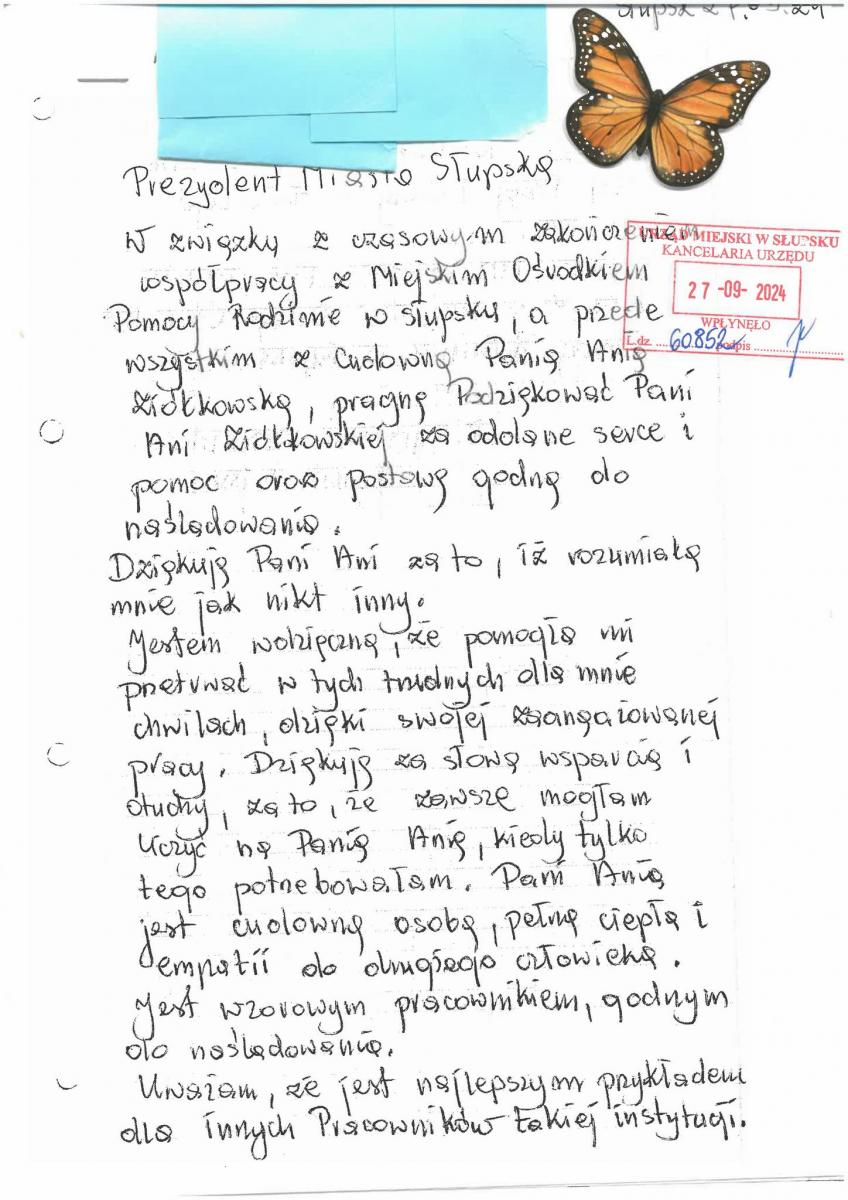 Słupsk
Prezydent Miasta Słupska
URZĄD MIEJSKI W SŁUPSKU
KANCELARIA URZĘDU
27 -09- 2024
WPŁYNĘŁO
L.dz. 60852 podpis
W związku z czasowym zakończeniem
współpracy z Miejskim Ośrodkiem
Pomocy Rodzinie w Słupsku, a przede
wszystkim z Cudowną Panią Anią
Ziółkowską, pragnę Podziękować Pani
Ani Ziółkowskiej za oddane serce i
pomoc oraz postawę godną do
naśladowania.
Dziękuję Pani Ani za to, iż rozumiała
mnie jak nikt inny.
Jestem wdzięczna, że pomogła mi
przetrwać w tych trudnych dla mnie
chwilach, dzięki swojej zaangażowanej
pracy. Dziękuję za słowa wsparcia i
otuchy, za to, że zawsze mogłam
liczyć na Panią Anię, kiedy tylko
tego potrzebowałam. Pani Ania
jest cudowną osobą, pełną ciepła i
empatii do drugiego człowieka.
Jest wzorowym pracownikiem, godnym
do naśladowania.
Uważam, że jest najlepszym przykładem
dla innych Pracowników takiej instytucji.